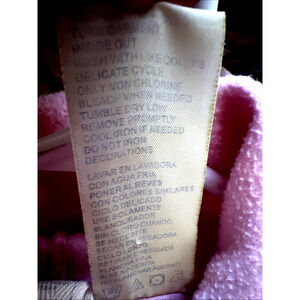 TURN GARMENT
INSIDE OUT
WASH WITH LIKE COLORS
DELICATE CYCLE
ONLY NON CHLORINE
BLEACH WHEN NEEDED
TUMBLE DRY LOW
REMOVE PROMPTLY
COOL IRON IF NEEDED
DO NOT IRON
DECORATIONS
LAVAR EN LAVADORA
CON AGUA FRIA
PONER AL REVES
CON COLORES SIMILARES
CICLO DELICADO
USE SOLAMENTE
BLANQUEADOR
SIN CLORO CUANDO
SE NECESITE